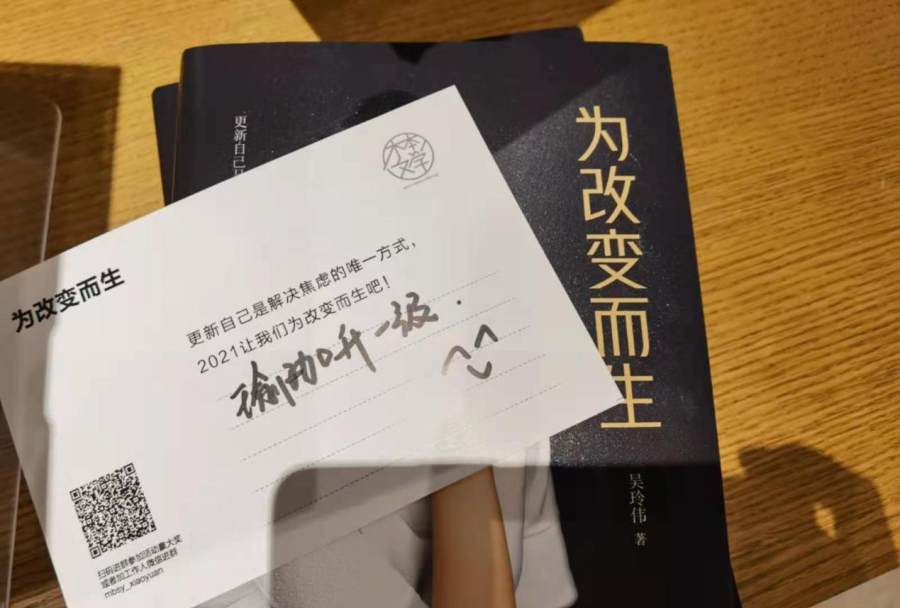 为改变而生
更新自己是解决焦虑的唯一方式，
2021让我们为改变而生吧！
瑜伽升一级.
扫码进群参加活动赢大奖
或者加工作人微信进群
mbsy_xiaoyuan
更新自己
为改变而生
吴玲伟 著